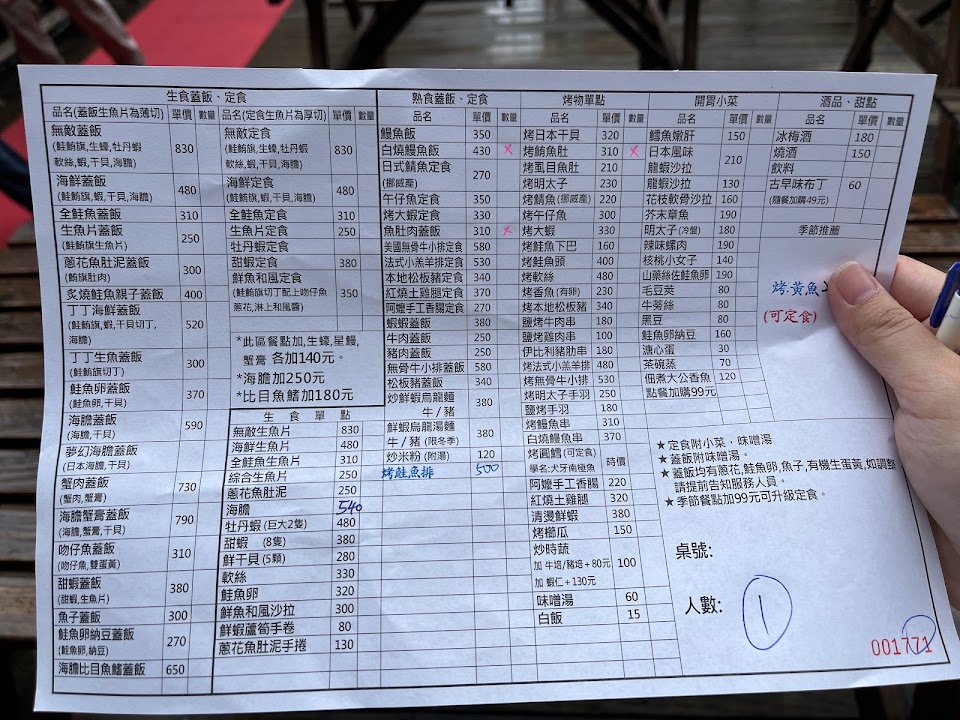 生食蓋飯、定食
品名(蓋飯生魚片為薄切) 單價 數量
無敵蓋飯 830
(鮭鮪旗,生蠔,牡丹蝦
軟絲,蝦,干貝,海膽)
海鮮蓋飯 480
(鮭鮪旗,蝦,干貝,海膽)
全鮭魚蓋飯 310
生魚片蓋飯 250
(鮭鮪旗生魚片)
蔥花魚肚泥蓋飯 300
(鮪旗肚肉)
炙燒鮭魚親子蓋飯 400
丁丁海鮮蓋飯 520
(鮭鮪旗,蝦,干貝切丁,
海膽)
丁丁生魚蓋飯 300
(鮭鮪旗切丁)
鮭魚卵蓋飯 370
(鮭魚卵,干貝)
海膽蓋飯 590
(海膽,干貝)
夢幻海膽蓋飯
(日本海膽,干貝)
蟹肉蓋飯 730
(蟹肉,蟹膏)
海膽蟹膏蓋飯 790
(海膽,蟹膏,干貝)
吻仔魚蓋飯 310
(吻仔魚,雙蛋黃)
甜蝦蓋飯 380
(甜蝦,生魚片)
魚子蓋飯 300
鮭魚卵納豆蓋飯 270
(鮭魚卵,納豆)
海膽比目魚鰭蓋飯 650
品名(定食生魚片為厚切) 單價 數量
無敵定食 830
(鮭鮪旗,生蠔,牡丹蝦
軟絲,蝦,干貝,海膽)
海鮮定食 480
(鮭鮪旗,蝦,干貝,海膽)
全鮭魚定食 310
生魚片定食 250
牡丹蝦定食
甜蝦定食 380
鮮魚和風定食 350
(鮭魚鮪旗切丁配上吻仔魚
蔥花,淋上和風醬)
*此區餐點加,生蠔,星鰻,
蟹膏 各加140元。
*海膽加250元
*比目魚鰭加180元
生食單點
無敵生魚片 830
海鮮生魚片 480
全鮭魚生魚片 310
綜合生魚片 250
蔥花魚肚泥 250
海膽 540
牡丹蝦(巨大2隻) 480
甜蝦 (8隻) 380
鮮干貝(5顆) 280
軟絲 330
鮭魚卵 320
鮮魚和風沙拉 300
鮮蝦蘆筍手卷 80
蔥花魚肚泥手捲 130
熟食蓋飯、定食
品名 單價 數量
鰻魚飯 350
白燒鰻魚飯 430 ×
日式鯖魚定食 270
(挪威產)
午仔魚定食 350
烤大蝦定食 330
魚肚肉蓋飯 310 ×
美國無骨牛小排定食 580
法式小羔羊排定食 530
本地松板豬定食 340
紅燒土雞腿定食 370
阿嬤手工香腸定食 270
蝦蝦蓋飯 380
牛肉蓋飯 250
豬肉蓋飯 250
無骨牛小排蓋飯 580
松板豬蓋飯 340
炒鮮蝦烏龍麵 380
牛 / 豬
鮮蝦烏龍湯麵 380
牛 / 豬 (限冬季)
炒米粉 (附湯) 120
烤鮭魚排 500
烤物單點
品名 單價 數量
烤日本干貝 320
烤鮪魚肚 310 ×
烤虱目魚肚 210
烤明太子 230
烤鯖魚(挪威產) 220
烤午仔魚 300
烤大蝦 330
烤鮭魚下巴 160
烤鮭魚頭 400
烤軟絲 480
烤香魚(有卵) 230
烤本地松板豬 340
鹽烤牛肉串 180
鹽烤雞肉串 100
伊比利豬肋串 180
烤法式小羔羊排 480
烤無骨牛小排 530
烤明太子手羽 250
鹽烤手羽 180
鰻魚串 310
白燒鰻魚串 370
烤圓鱈(可定食) 時價
學名:犬牙南極魚
阿嬤手工香腸 220
紅燒土雞腿 320
清燙鮮蝦 380
烤櫛瓜 150
炒時蔬 100
加 牛培/豬培+80元
加 蝦仁+130元
味噌湯 60
白飯 15
開胃小菜
品名 單價 數量
鱈魚嫩肝 150
日本風味 210
龍蝦沙拉
龍蝦沙拉 130
花枝軟骨沙拉 160
芥末章魚 190
明太子(冷盤) 180
辣味螺肉 190
核桃小女子 140
山藥絲佐鮭魚卵 190
毛豆莢 80
牛蒡絲 80
黑豆 80
鮭魚卵納豆 160
溏心蛋 30
茶碗蒸 70
佃煮大公香魚 120
點餐加購99元
酒品、甜點
品名 單價 數量
冰梅酒 180
燒酒 150
飲料
古早味布丁 60
(隨餐加購49元)
季節推薦
烤.黃魚
(可定食)
★定食附小菜,味噌湯
★蓋飯附味噌湯。
★蓋飯均有蔥花,鮭魚卵,魚子,有機生蛋黃,如調整
請提前告知服務人員。
★季節餐點加99元可升級定食。
桌號:
人數: 1
001771